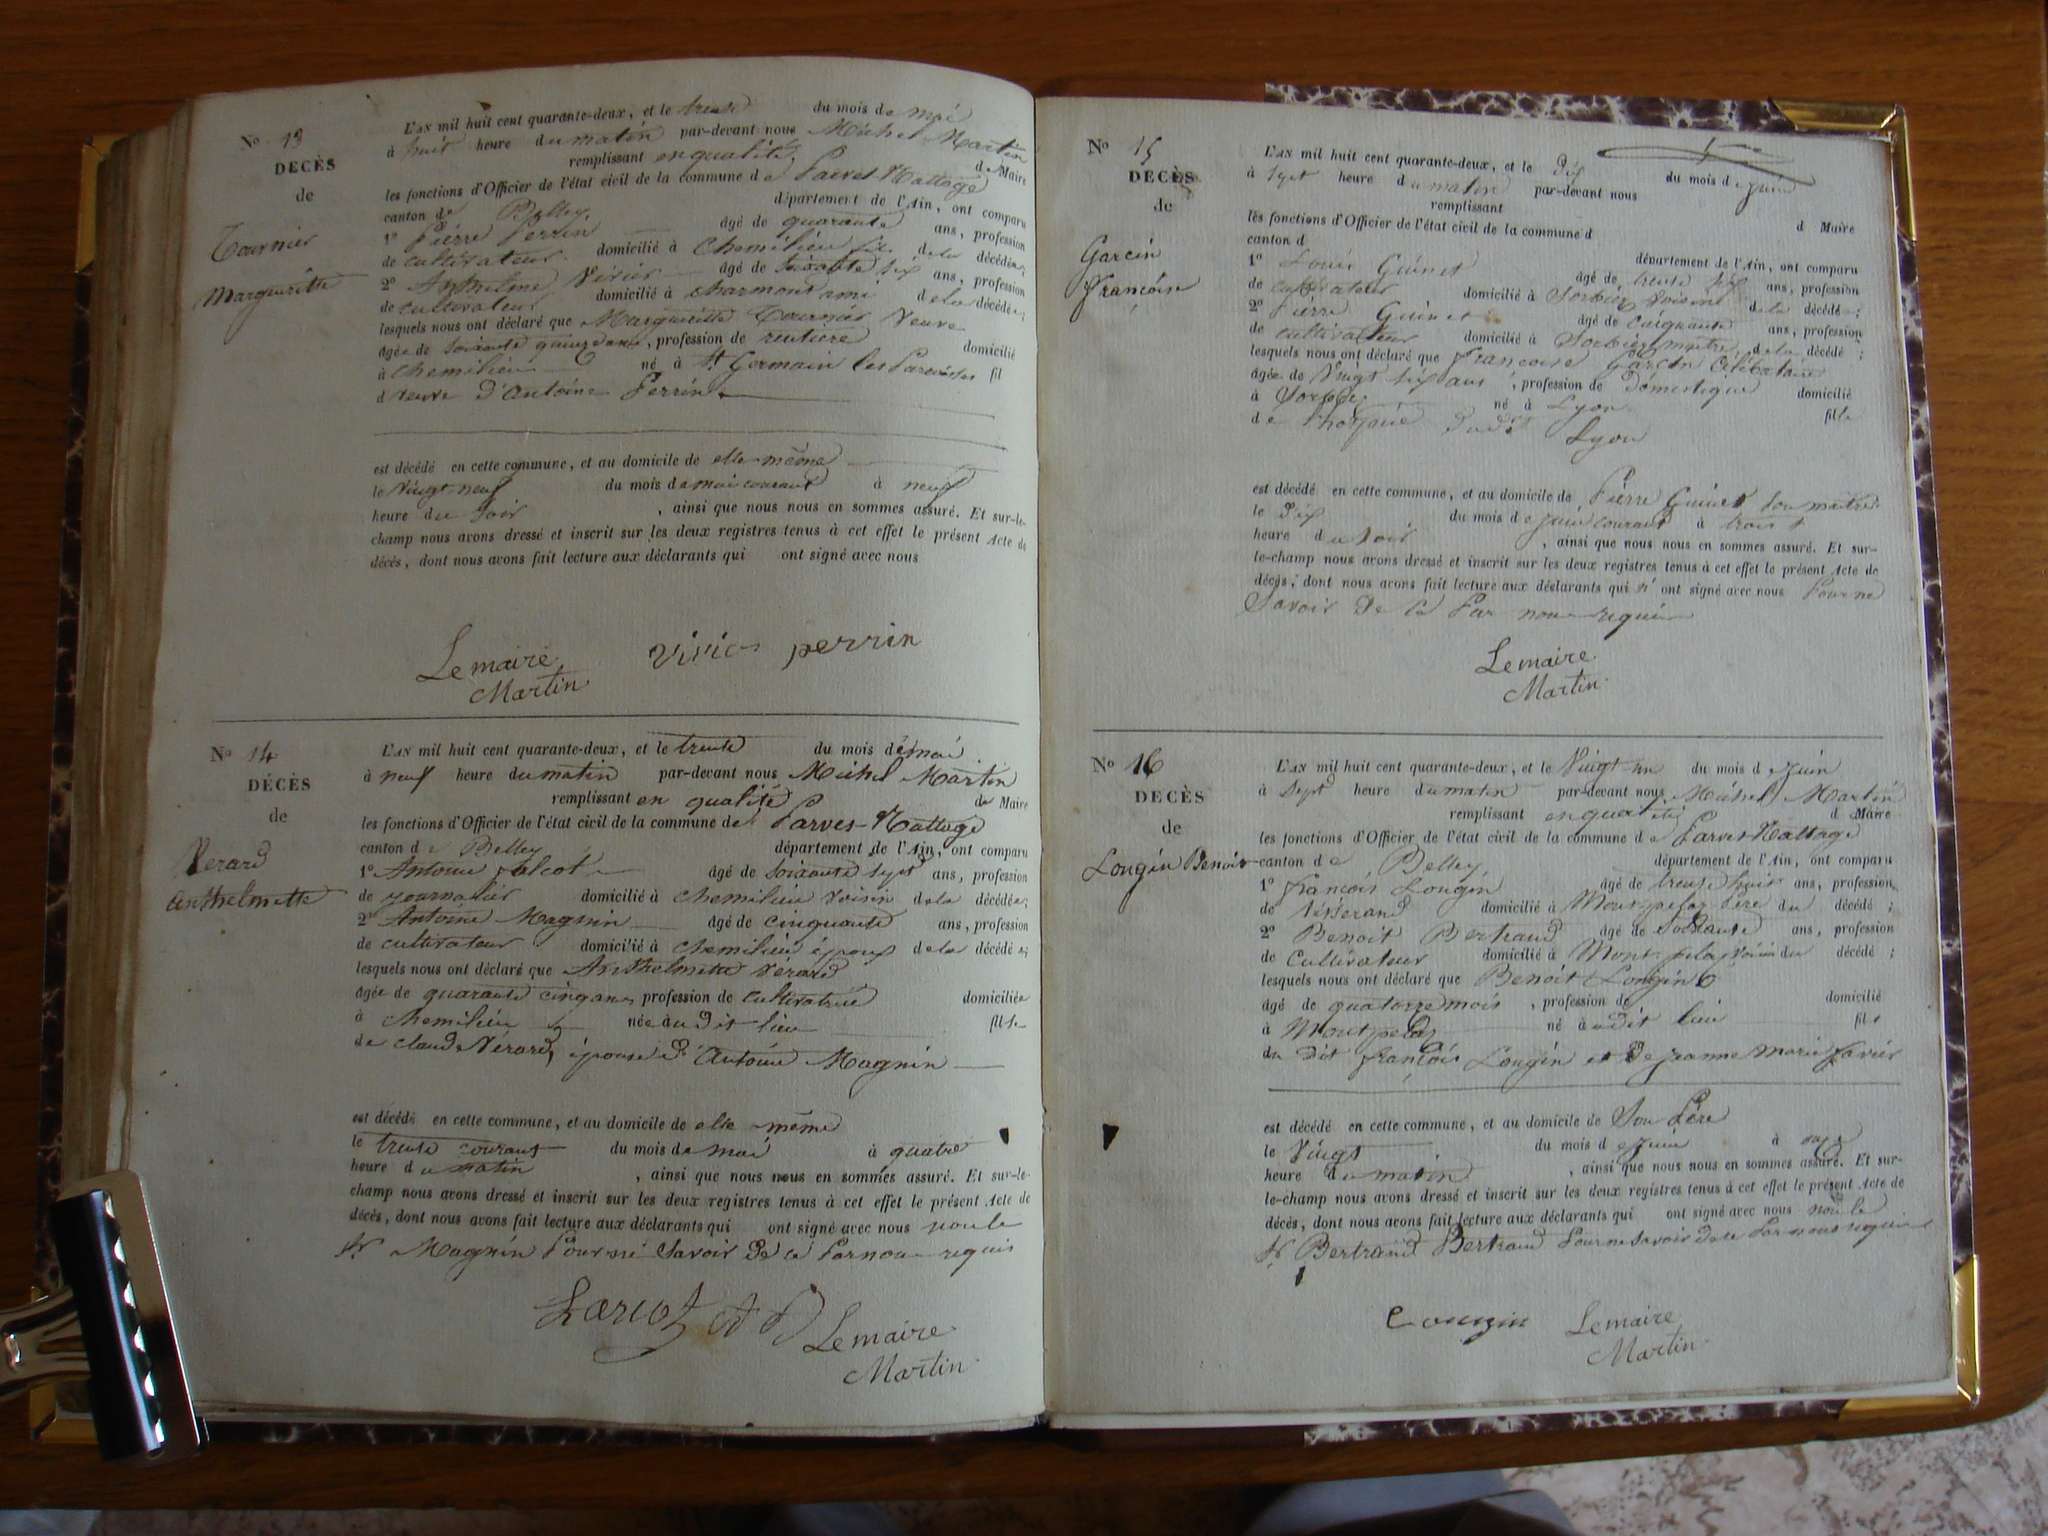 N° 13
DECÈS
de
Tournier
Margueritte
L'AN mil huit cent quarante-deux, et le trente du mois de mai
à huit heure du matin par-devant nous Michel Martin
remplissant en qualité de Maire
les fonctions d'Officier de l'état civil de la commune de Parves-Nattage
canton de Belley département de l'Ain, ont comparu
1° Pierre Perrin âgé de quarante ans, profession
de cultivateur domicilié à Chemilieu fils de la décédée;
2° Anthelme Vivier âgé de soixante six ans, profession
de cultivateur domicilié à Charmont ami de la décédée;
lesquels nous ont déclaré que Margueritte Tournier Veuve
agée de soixante quinze ans, profession de rentiere domicilié
à Chemilieu né à St Germain les Paroisses fil
d veuve d'Antoine Perrin
est décédé en cette commune, et au domicile de elle-même
le Vingt-neuf du mois de mai courant à neuf
heure du soir, ainsi que nous nous en sommes assuré. Et sur-le-
champ nous avons dressé et inscrit sur les deux registres tenus à cet effet le présent Acte de
décès, dont nous avons fait lecture aux déclarants qui ont signé avec nous
Lemaire vivier perrin
Martin
N° 14
DÉCÈS
de
Verard
Anthelmette
L'AN mil huit cent quarante-deux, et le trente du mois de mai
à neuf heure du matin par-devant nous Michel Martin
remplissant en qualité de Maire
les fonctions d'Officier de l'état civil de la commune de Parves-Nattage
canton de Belley département de l'Ain, ont comparu
1° Antoine âgé de soixante sept ans, profession
de journalier domicilié à Chemilieu voisin de la décédée;
2° Antoine Magnin âgé de cinquante ans, profession
de cultivateur domicilié à Chemilieu époux de la décédée;
lesquels nous ont déclaré que Anthelmette Vérard
agée de quarante cinq ans profession de cultivatrice domiciliée
à Chemilieu née au dit lieu fille
de claude Vérard, épouse d'Antoine Magnin
est décédé en cette commune, et au domicile de elle même
le trente courant du mois de mai à quatre
heure du matin, ainsi que nous nous en sommes assuré. Et sur-le-
champ nous avons dressé et inscrit sur les deux registres tenus à cet effet le présent Acte de
décès, dont nous avons fait lecture aux déclarants qui ont signé avec nous non le
Sr Magnin Pour ne Savoir de ce Par nous requis
Lemaire
Martin
N° 15
DECÈS
de
Garcin
Françoise
L'AN mil huit cent quarante-deux, et le Dix du mois de juin
à Sept heure du matin par-devant nous
remplissant d Maire
les fonctions d'Officier de l'état civil de la commune d
canton d département de l'Ain, ont comparu
1° Louis Guinet âgé de trente six ans, profession
de cultivateur domicilié à Sorbier Voisin de la décédé;
2° Pierre Guinet âgé de Cinquante ans, profession
de cultivateur domicilié à Sorbier maitre de la décédé;
lesquels nous ont déclaré que Françoise Garcin Célibataire
âgée de Vingt six ans, profession de Domestique domicilié
à Sorbier né à Lyon fille
de l'hospice dudit Lyon
est décédé en cette commune, et au domicile de Pierre Guinet son maitre
le Dix du mois de juin courant à trois
heure du soir, ainsi que nous nous en sommes assuré. Et sur-
le-champ nous avons dressé et inscrit sur les deux registres tenus à cet effet le présent Acte de
décès, dont nous avons fait lecture aux déclarants qui n'ont signé avec nous Pour ne
Savoir de ce Par nous requis
Lemaire
Martin
N° 16
DECÈS
de
Longin Benoit
L'AN mil huit cent quarante-deux, et le Vingt-un du mois de Juin
à Sept heure du matin par-devant nous Michel Martin
remplissant en qualité d Maire
les fonctions d'Officier de l'état civil de la commune de Parves-Nattage
canton de Belley département de l'Ain, ont comparu
1° François Longin âgé de trente huit ans, profession
de tisserand domicilié à Montpelas Père du décédé;
2° Benoit Bertrand âgé de Soixante ans, profession
de Cultivateur domicilié à Montpelas Voisin du décédé;
lesquels nous ont déclaré que Benoit Longin
âgé de quatorze mois, profession de domicilié
à Montpelas né au dit lieu fils
du dit François Longin et de jeanne marie Favier
est décédé en cette commune, et au domicile de Son Père
le Vingt du mois de juin à onze
heure du matin, ainsi que nous nous en sommes assuré. Et sur-
le-champ nous avons dressé et inscrit sur les deux registres tenus à cet effet le présent Acte de
décès, dont nous avons fait lecture aux déclarants qui ont signé avec nous non le
Sr Bertrand Bertrand Pour ne Savoir de ce Par nous requis
Longin Lemaire
Martin